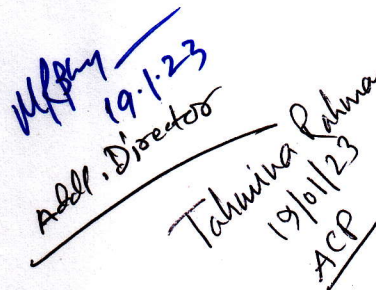 19.1.23
Addl. Director
Tahmina Rahma
19/01/23
ACP